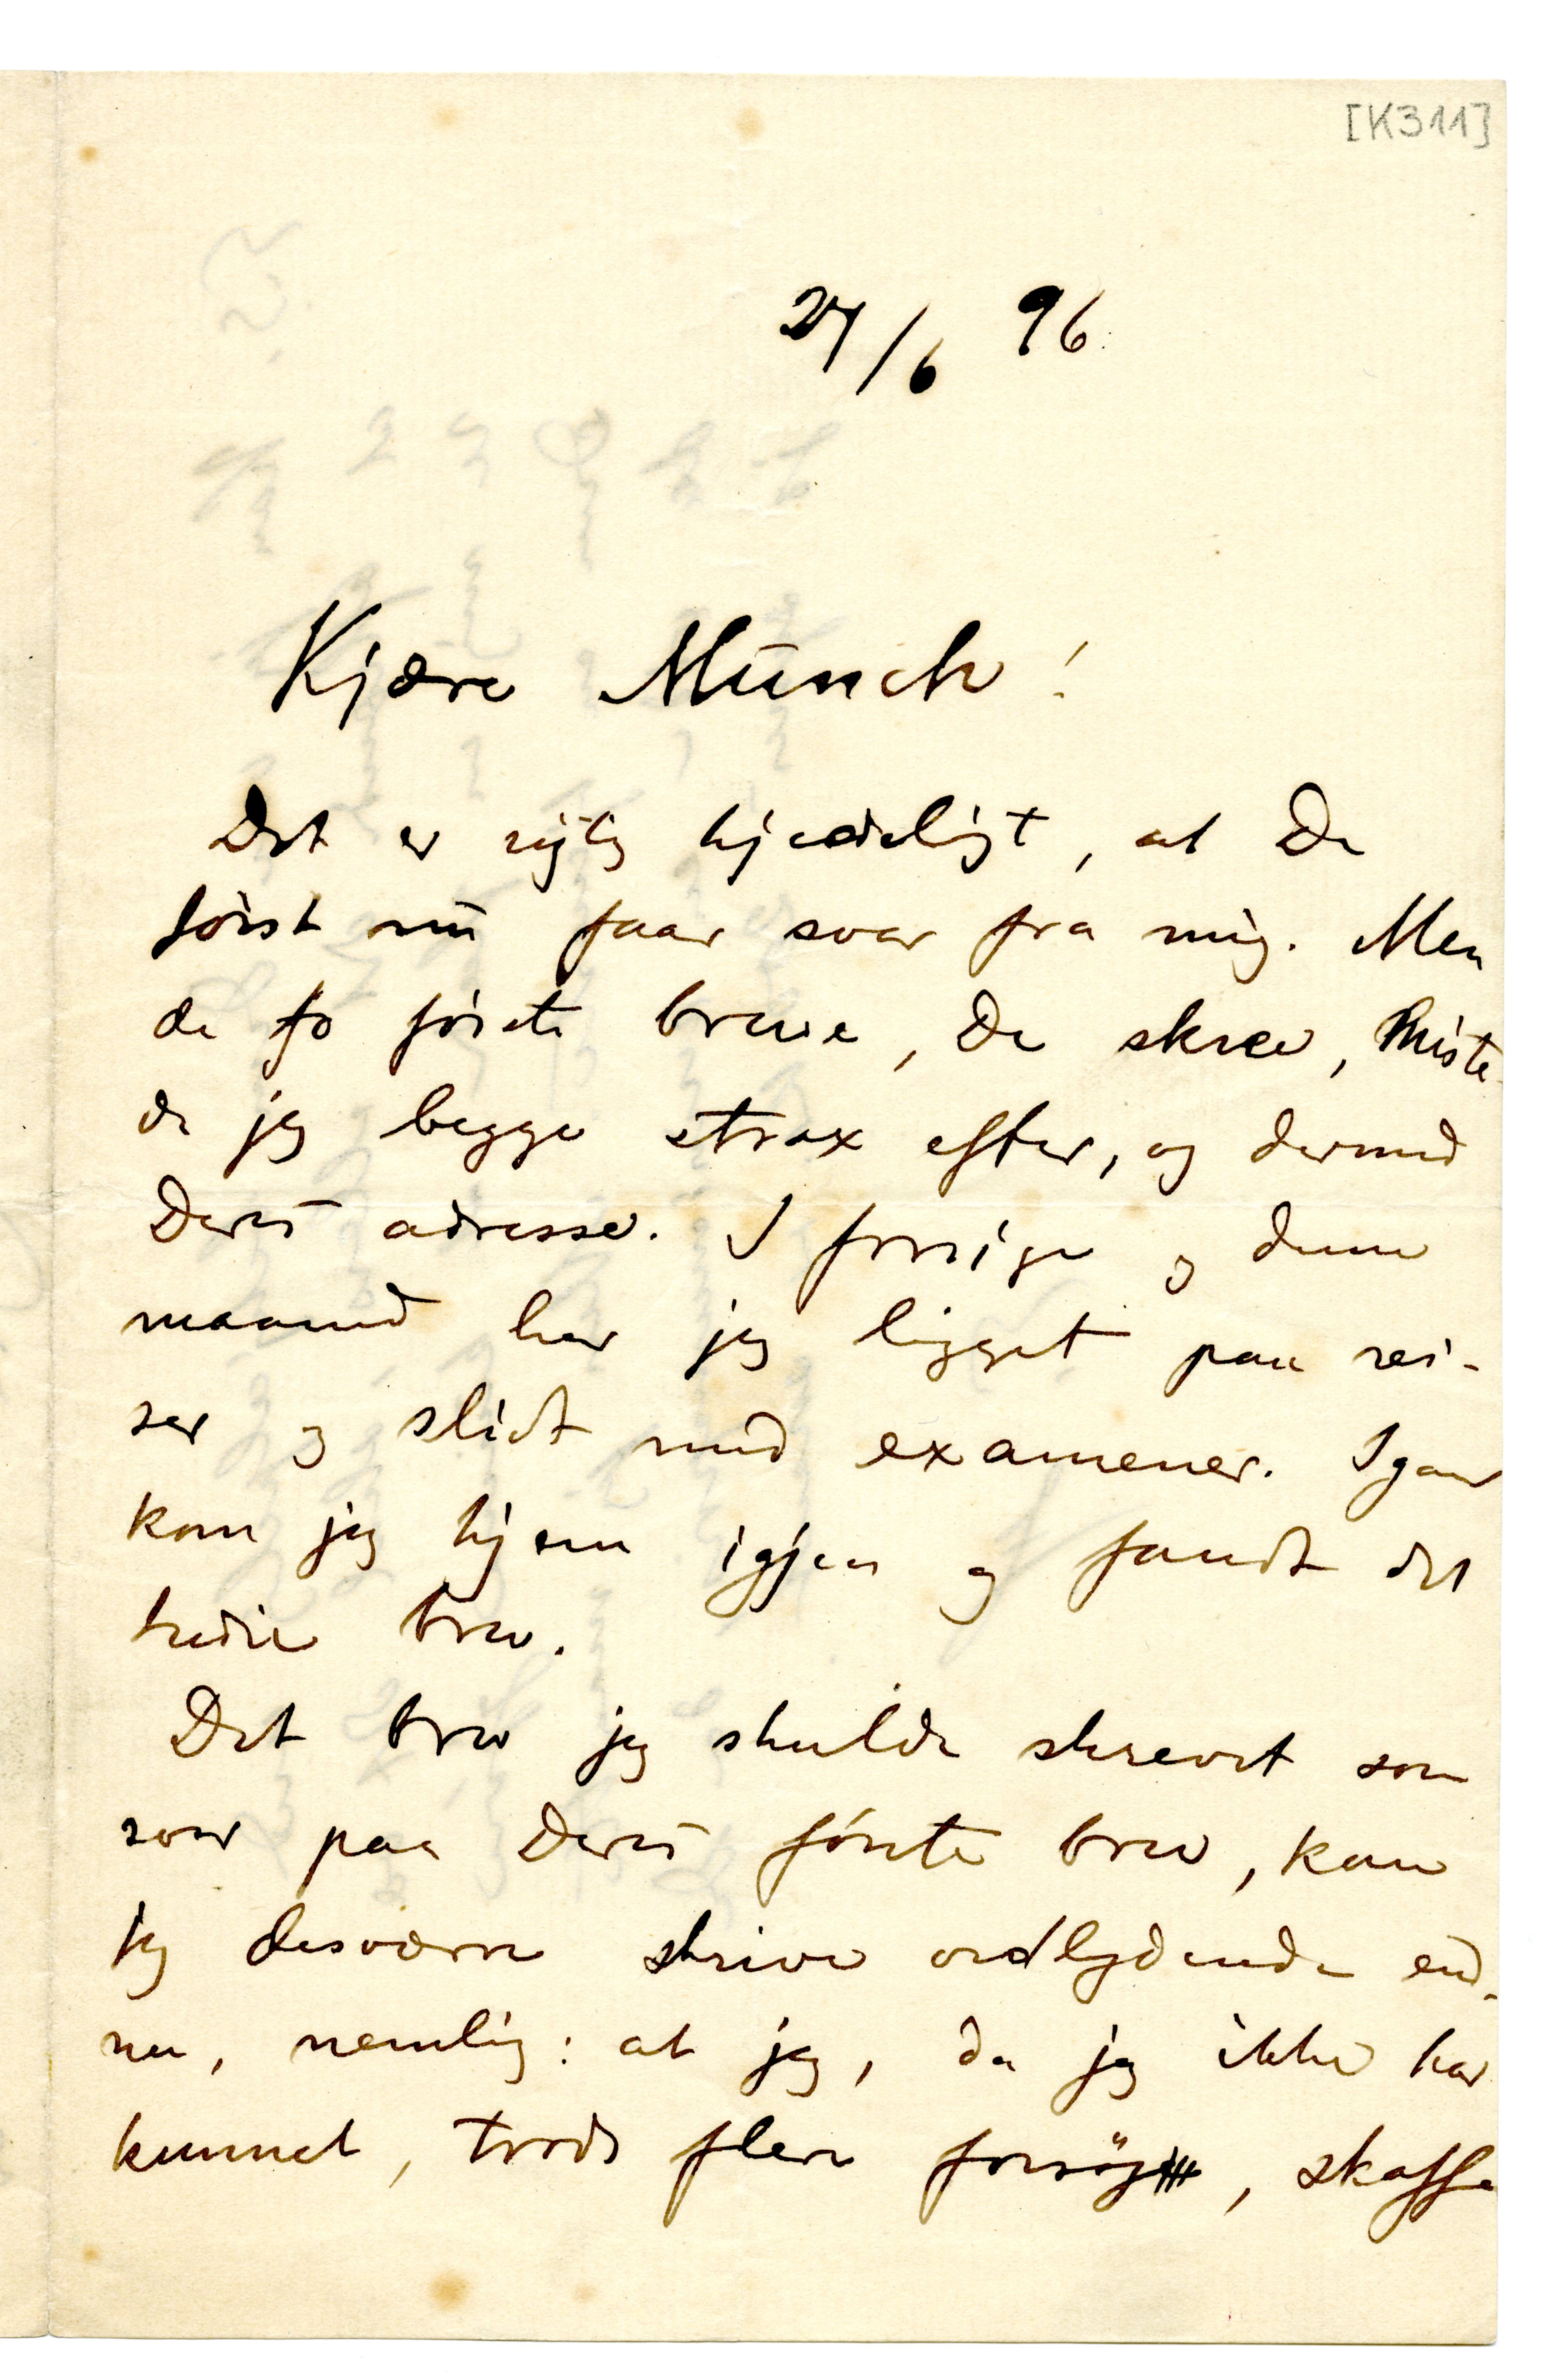 [K311]
27/6 96.
Kjære Münch!
Det er rigtig kjedeligt, at De
först nu faar svar fra mig. Men
de to förste breve, De skrev, miste
de jeg begge strax efter, og dermed
Deres adresse. I forrige og denne
maaned har jeg ligget paa rei-
ser og slidt med examener. Igaar
kom jeg hjem igjen og fandt det
tredie brev.
Det brev jeg skulde skrevet som
svar paa Deres förste brev, kan
jeg desværre skrive ordlydende end-
nu, nemlig: at jeg, da jeg ikke har
kunnet, trods flere forsög, skaffe